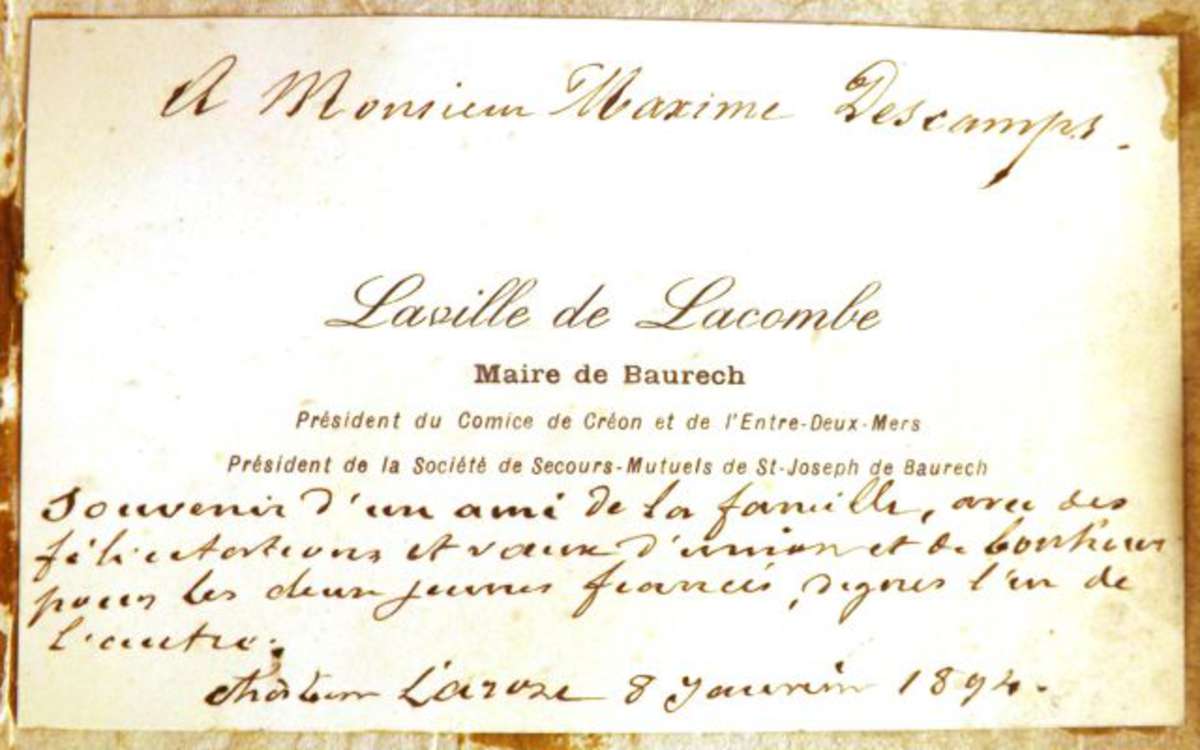 A Monsieur Maxime Descamps.
Laville de Lacombe
Maire de Baurech
Président du Comice de Créon et de l'Entre-Deux-Mers
Président de la Société de Secours-Mutuels de St-Joseph de Baurech
Souvenir d'un ami de la famille, avec des
félicitations et vœux d'union et de bonheur
pour les deux jeunes fiancés, dignes l'un de
l'autre.
Château Laroze 8 Janvier 1894.